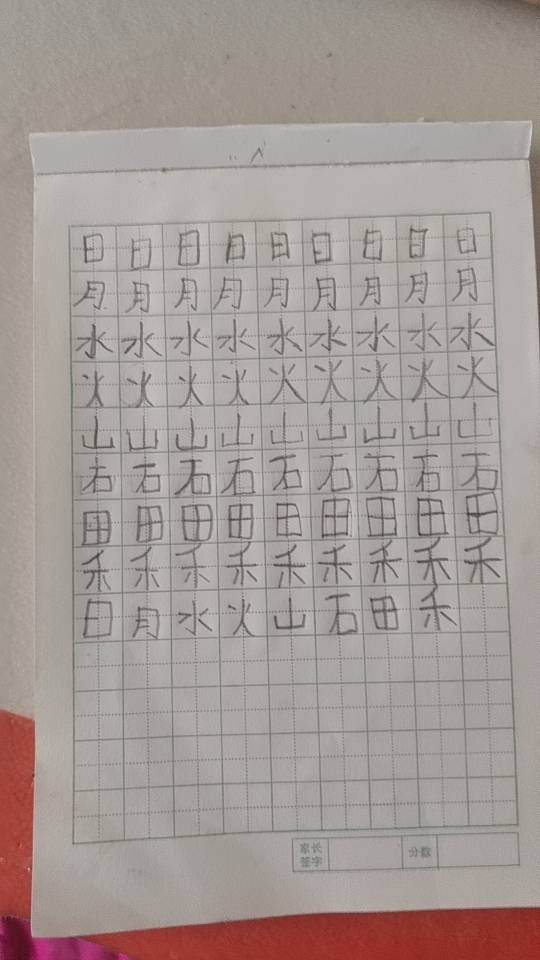 日日日日日日日日日
月月月月月月月月月
水水水水水水水水水
火火火火火火火火火
山山山山山山山山山
石石石石石石石石石
田田田田田田田田田
禾禾禾禾禾禾禾禾禾
日月水火山石田禾
家长签字 分数